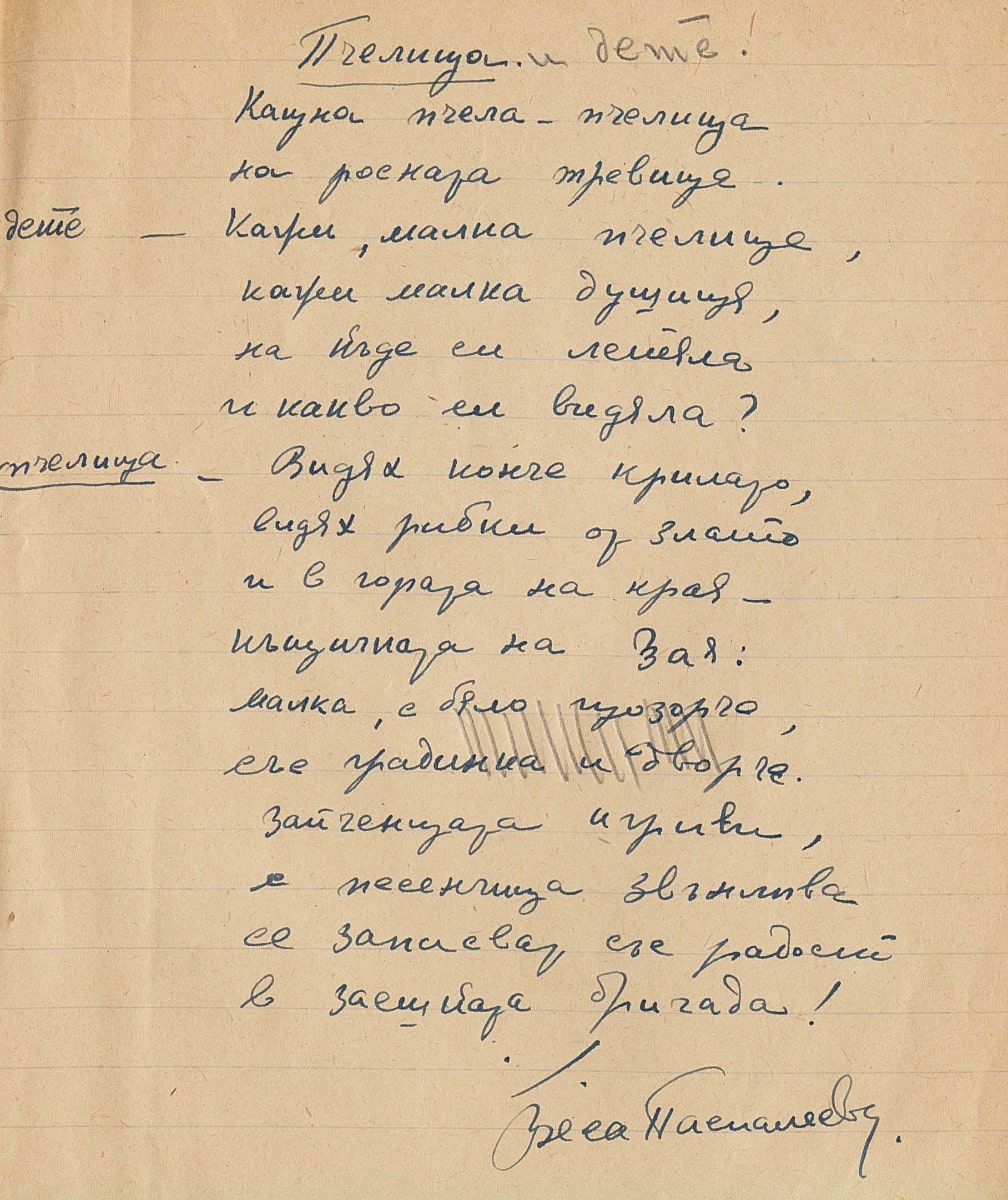 Пчелица. и дете!
Кацна пчела – пчелица
на росната тревица.
дете — Кажи, малка пчелице,
кажи малка душице,
на къде си летяла
и какво си видяла?
пчелица – Видях конче крилато,
видях рибки от злато
и в гората на края –
къщичката на Зая:
малка, с бяло прозорче,
със градинка и дворче.
Зайченцата игриви,
с песенчица звънлива
се запиват със радост
в заешката бригада!
Веса Паспалеева.